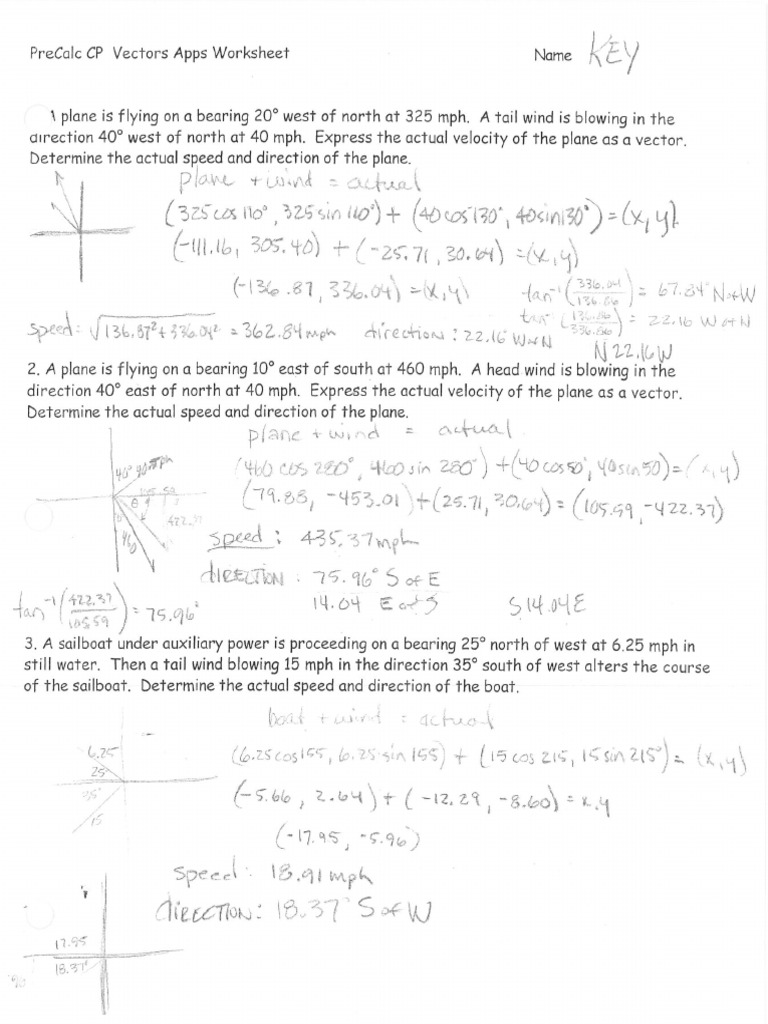 PreCalc CP Vectors Apps Worksheet Name KEY
plane is flying on a bearing 20° west of north at 325 mph. A tail wind is blowing in the
direction 40° west of north at 40 mph. Express the actual velocity of the plane as a vector.
Determine the actual speed and direction of the plane.
plane + wind = actual
(325 cos 110°, 325 sin 110°) + (40 cos 130°, 40 sin 130°) = (x, y)
(-111.16, 305.40) + (-25.71, 30.64) = (x, y)
(-136.87, 336.04) = (x, y)
tan⁻¹(336.04/136.86) = 67.84° N of W
tan⁻¹(136.86/336.86) = 22.16 W of N
speed: √136.87² + 336.04² = 362.84 mph direction: 22.16° W of N
N 22.16 W
2. A plane is flying on a bearing 10° east of south at 460 mph. A head wind is blowing in the
direction 40° east of north at 40 mph. Express the actual velocity of the plane as a vector.
Determine the actual speed and direction of the plane.
plane + wind = actual
40° 40 mph
(460 cos 280°, 460 sin 280°) + (40 cos 50°, 40 sin 50) = (x, y)
(79.88, -453.01) + (25.71, 30.64) = (105.59, -422.37)
105.59
θ
422.37
460
speed: 435.37 mph
DIRECTION: 75.96° S of E
14.04 E of S S 14.04 E
tan⁻¹(422.37/105.59) = 75.96°
3. A sailboat under auxiliary power is proceeding on a bearing 25° north of west at 6.25 mph in
still water. Then a tail wind blowing 15 mph in the direction 35° south of west alters the course
of the sailboat. Determine the actual speed and direction of the boat.
boat + wind = actual
6.25
25°
35°
15
(6.25 cos 155, 6.25 sin 155) + (15 cos 215, 15 sin 215°) = (x, y)
(-5.66, 2.64) + (-12.29, -8.60) = x, y
(-17.95, -5.96)
speed: 18.91 mph
DIRECTION: 18.37° S of W
17.95
18.37°